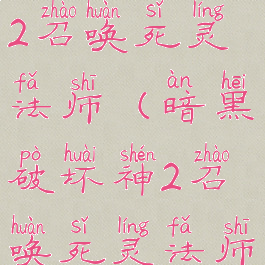 zhào huàn sǐ líng
2召唤死灵
fǎ shī àn hēi
法师（暗黑
pò huài shén zhào
破坏神2召
huàn sǐ líng fǎ shī
唤死灵法师